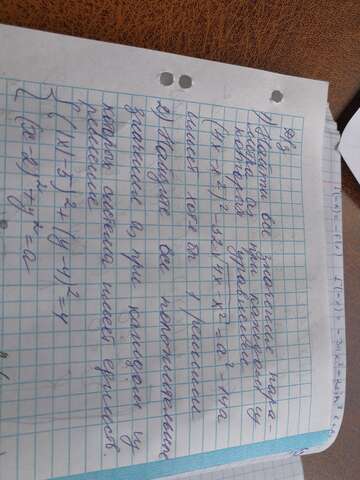 Дз
1) Найти все значения пара-
метра а, при каждом из
которых уравнение
(4x-x²)² - 32√4x-x² = a² - 14a
имеет хотя бы 1 решение
2) Найдите все положительные
значения a, при каждом из
которых система имеет единств.
решение
{ (|x|-5)² + (y-4)² = 4
(x-2)² + y² = a